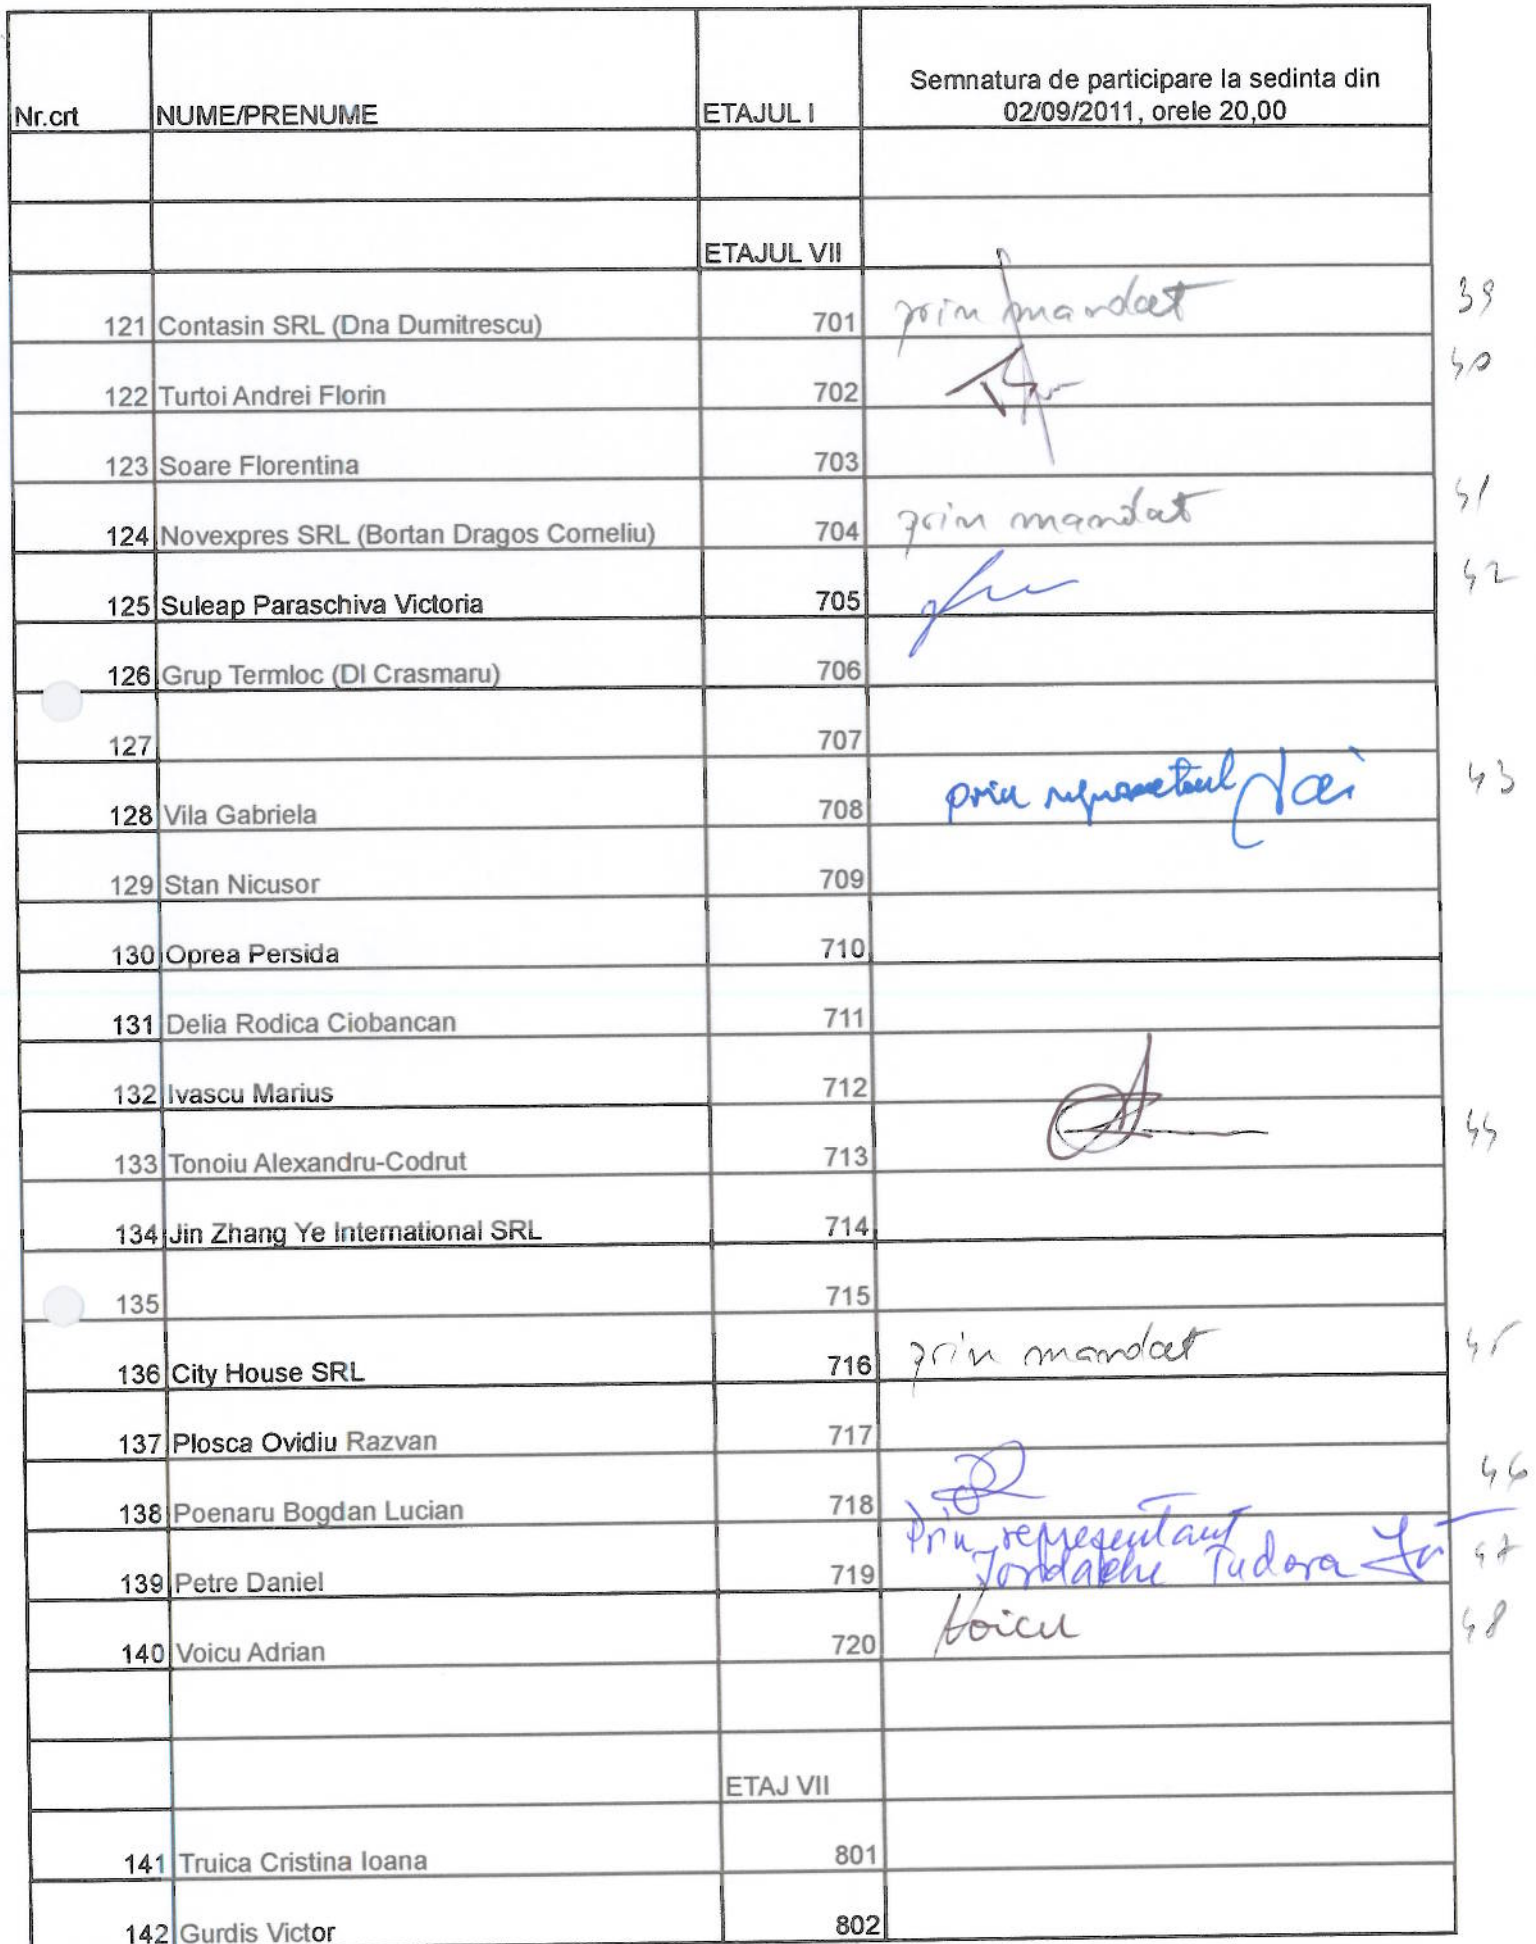 Nr.crt NUME/PRENUME ETAJUL I Semnatura de participare la sedinta din
02/09/2011, orele 20,00
ETAJUL VII
121 Contasin SRL (Dna Dumitrescu) 701 prin mandat 39
122 Turtoi Andrei Florin 702 40
123 Soare Florentina 703
124 Novexpres SRL (Bortan Dragos Corneliu) 704 prin mandat 41
125 Suleap Paraschiva Victoria 705 42
126 Grup Termloc (Dl Crasmaru) 706
127 707
128 Vila Gabriela 708 prin 43
129 Stan Nicusor 709
130 Oprea Persida 710
131 Delia Rodica Ciobancan 711
132 Ivascu Marius 712
133 Tonoiu Alexandru-Codrut 713 44
134 Jin Zhang Ye International SRL 714
135 715
136 City House SRL 716 prin mandat 45
137 Plosca Ovidiu Razvan 717
138 Poenaru Bogdan Lucian 718 46
Prin reprezentant
139 Petre Daniel 719 Iordache Tudora 47
140 Voicu Adrian 720 Voicu 48
ETAJ VII
141 Truica Cristina Ioana 801
142 Gurdis Victor 802